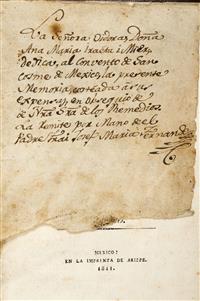 La Señora Oidora Doña
Ana Maria Iraeta i Mier,
dedica, al Convento de San
Cosme de Mexico, la presente
Memoria, costeada á sus
expensas, en obsequio de
de Ntra Sra de los Remedios.
La remite por Mano de el
Padre Frai Josef Maria Fernandez
MEXICO:
EN LA IMPRENTA DE ARIZPE.
1811.